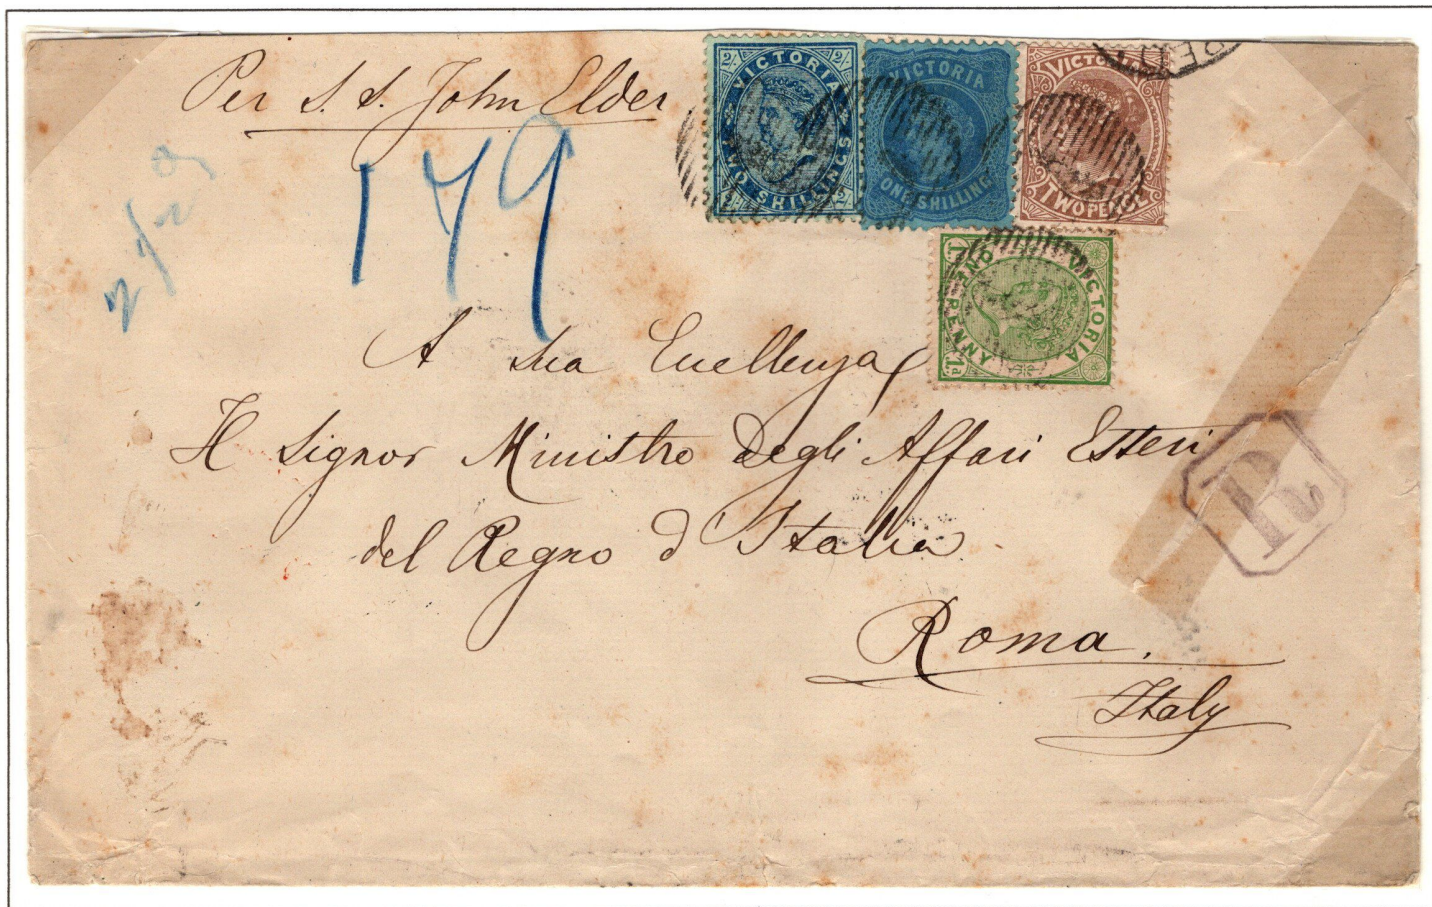 Per S. S. John Elder
179
2/29
VICTORIA
TWO SHILLINGS
2/-
2/-
2/-
2/-
VICTORIA
ONE SHILLING
VICTORIA
TWO PENCE
VICTORIA
ONE PENNY
1d
1d
A Sua Eccellenza
Il Signor Ministro Degli Affari Esteri
del Regno d'Italia
R
Roma.
Italy